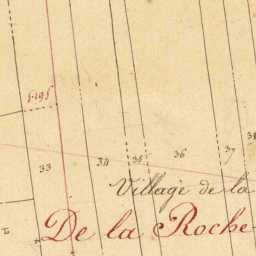 33 34 35 36 37
Village de la
De la Roche